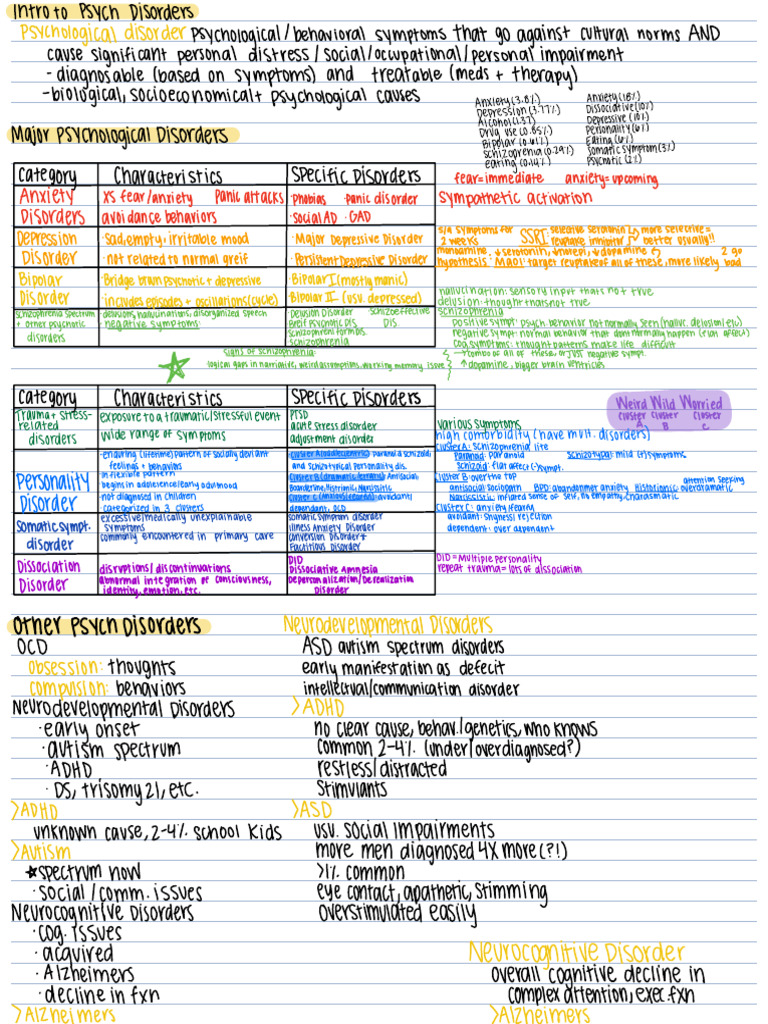 Intro to Psych Disorders
Psychological disorder psychological/behavioral symptoms that go against cultural norms AND
cause significant personal distress/social/occupational/personal impairment
- diagnosable (based on symptoms) and treatable (meds + therapy)
- biological, socioeconomical + psychological causes
Anxiety (3.8%)
Depression (3.77%)
Alcohol (1.37)
Drug use (0.85%)
Bipolar (0.61%)
Schizoprenia (0.29%)
eating (0.14%)
Anxiety (18%)
Dissociative (10%)
Depressive (10%)
Personality (6%)
Eating (6%)
Somatic symptom (3%)
Psychotic (2%)
Major Psychological Disorders
Category Characteristics Specific Disorders
fear=immediate anxiety=upcoming
Anxiety Disorders
XS fear/anxiety Panic attacks
avoidance behaviors
·Phobias Panic disorder
·Social AD ·GAD
Sympathetic activation
Depression Disorder
·Sad, empty, irritable mood
·not related to normal greif
·Major Depressive Disorder
·Persistent Depressive Disorder
5/9 symptoms for 2 weeks
SSRI: selective serotonin reuptake inhibitor
more selective = better usually!!
monoamine hypothesis
↓serotonin, ↓norepi, ↓dopamine
2 go
MAOI: target reuptake of all of these, more likely bad
Bipolar Disorder
·Bridge b/w psychotic + depressive
·includes episodes + oscillations (cycle)
Bipolar I (mostly manic)
Bipolar II (usv. depressed)
hallucination: sensory input thats not true
delusion: thought thats not true
Schizophrenia spectrum + other psychotic disorders
·delusions, hallucinations, disorganized speech
·negative symptoms:
Delusion Disorder Schizoeffective DIS
Breif Psychotic DIS
Schizophreniform DIS.
Schizophrenia
schizophrenia
positive sympt: psych. behavior not normally seen (halluc. delusion etc)
negative sympt: normal behavior that dont normally happen (flat affect)
cog. symptoms: thought patterns make life difficult
signs of schizophrenia:
logical gaps in narrative, weird assumptions, working memory issue
→ combo of all of these, or JUST negative sympt.
↑ dopamine, bigger brain ventricles
Category Characteristics Specific Disorders
Weird Wild Worried
cluster A cluster B cluster C
Trauma + stress-related disorders
exposure to a traumatic/stressful event
wide range of symptoms
PTSD
acute stress disorder
adjustment disorder
various symptoms
high comorbidity (have mult. disorders)
Personality Disorder
-enduring (lifetime) pattern of socially deviant
feelings + behaviors
inflexible pattern
begins in adolescence/early adulthood
·not diagnosed in children
·categorized in 3 clusters
Cluster A (odd/eccentric): paranoid schizoid
and schizotypical personality dis.
Cluster B (dramatic/erratic): Antisocial
Boarderline, Histrionic, Narcissistic
Cluster C (anxious/fearful): avoidant
dependant, OCD
cluster A: schizophrenia lite
Paranoid: Paranoid Schizotypal: mild (+) symptoms
Schizoid: flat affect (-) sympt.
cluster B: over the top
antisocial: sociopath BPD: abandonment anxiety Histrionic: overdramatic attention seeking
Narcisistic: inflated sense of self, no empathy, charasmatic
Cluster C: anxiety/fearful
avoidant: shyness/rejection
dependent: over dependent
Somatic sympt. disorder
excessive/medically unexplainable
symptoms
commonly encountered in primary care
somatic symptom disorder
illness Anxiety Disorder
conversion Disorder +
Factitious Disorder
Dissociation Disorder
disruptions/discontinuations
abnormal integration of consciousness,
identity, emotion, etc.
DID
Dissociative Amnesia
Depersonalization/Derealization
Disorder
DID = Multiple personality
repeat trauma = lots of dissociation
Other Psych Disorders
OCD
obsession: thoughts
compulsion: behaviors
Neurodevelopmental Disorders
·early onset
·autism spectrum
·ADHD
·DS, trisomy 21, etc.
>ADHD
unknown cause, 2-4% school kids
>Autism
★spectrum now
·social/comm. issues
Neurocognitive Disorders
·cog. issues
·acquired
·Alzheimers
·decline in fxn
>Alzheimers
Neurodevelopmental Disorders
ASD autism spectrum disorders
early manifestation as defecit
intellectual/communication disorder
>ADHD
no clear cause, behav./genetics, who knows
common 2-4% (under/overdiagnosed?)
restless/distracted
Stimulants
>ASD
usv. social impairments
more men diagnosed 4X more (?!)
>1% common
eye contact, apathetic, stimming
overstimulated easily
Neurocognitive Disorder
overall cognitive decline in
complex attention, exec. fxn
>Alzheimers